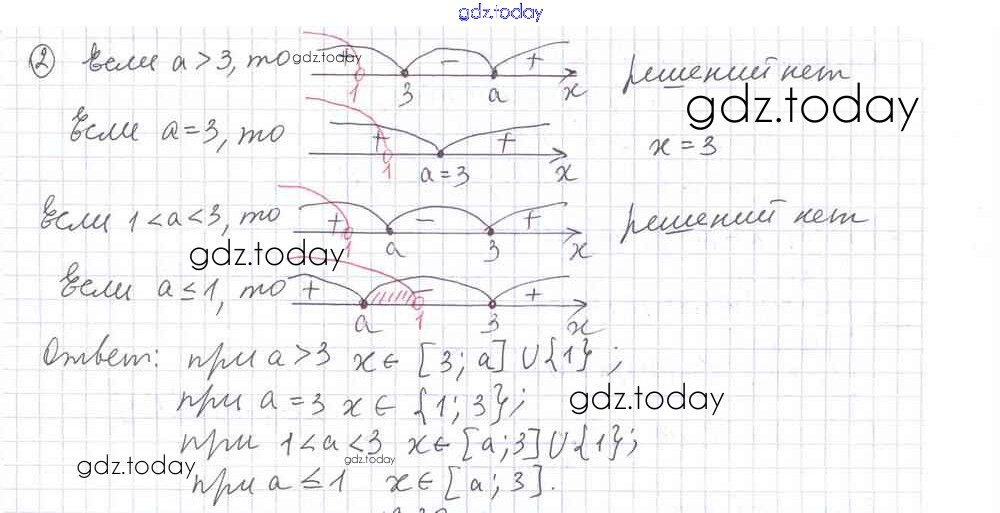 gdz.today
② Если a > 3, то gdz.today + − + 1 3 a x решений нет
gdz.today
Если a = 3, то + + 1 a = 3 x x = 3
Если 1 < a < 3, то + − + 1 a 3 x решений нет
gdz.today
Если a ≤ 1, то + − + a 1 3 x
Ответ: при a > 3 x ∈ [3; a] ∪ {1};
при a = 3 x ∈ {1; 3}; gdz.today
при 1 < a < 3 x ∈ [a; 3] ∪ {1};
gdz.today gdz.today
при a ≤ 1 x ∈ [a; 3].